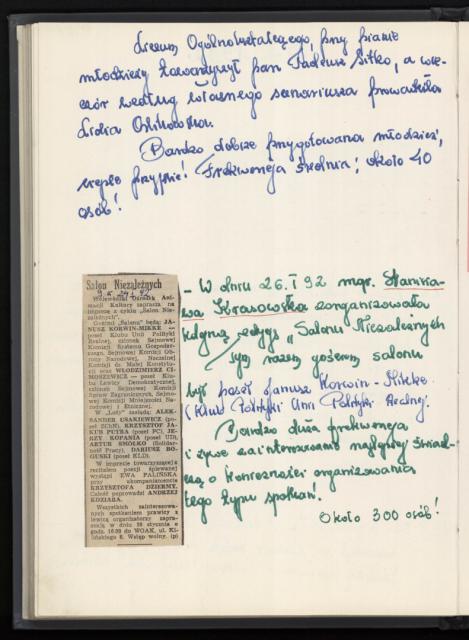 Liceum Ogólnokształcącego, przy pianie
młodzieży towarzyszył pan Tadeusz Sitko, a wie-
czór według własnego scenariusza prowadziła
Lidia
Bardzo dobrze przygotowana młodzież,
ciepłe przyjęcie! Frekwencja średnia; około 40
osób!
Salon Niezależnych
Wojewódzki Ośrodek Ani-
macji Kultury zaprasza na
imprezę z cyklu „Salon Nie-
zależnych".
Gośćmi „Salonu" będą: JA-
NUSZ KORWIN-MIKKE —
poseł Klubu Unii Polityki
Realnej, członek Sejmowej
Komisji Systemu Gospodar-
czego, Sejmowej Komisji Ob-
rony Narodowej, Sejmowej
Komisji ds Małej Konstytu-
cji oraz WŁODZIMIERZ CI-
MOSZEWICZ — poseł Klu-
bu Lewicy Demokratycznej,
członek Sejmowej Komisji
Spraw Zagranicznych, Sejmo-
wej Komisji Mniejszości Na-
rodowej i Etnicznej.
W „Loży" zasiądą: ALEK-
SANDER USAKIEWICZ (po-
seł ZChN), KRZYSZTOF JA-
KUB PUTRA (poseł PC), JE-
RZY KOPANIA (poseł UD),
ARTUR SMÓŁKO (Solidar-
ność Pracy), DARIUSZ BO-
GUSKI (poseł KLD).
W imprezie towarzyszącej z
recitalem poezji śpiewanej
wystąpi EWA PALIŃSKA
przy akompaniamencie
KRZYSZTOFA DZIERMY.
Całość poprowadzi ANDRZEJ
KOZIARA.
Wszystkich zainteresowa-
nych spotkaniem prawicy z
lewicą organizatorzy zapra-
szają w dniu 26 stycznia o
godz. 16.30 do WOAK, ul. Ki-
lińskiego 8. Wstęp wolny. (p)
- W dniu 26.I 92 mgr. Stanisła-
wa Krasowska zorganizowała
kolejną edycję „Salonu Niezależnych
Tym razem gościem salonu
był poseł Janusz Korwin-Mikke.
(Klub Polityki Unii Polityki Realnej.
Bardzo duża frekwencja
i żywe zainteresowanie najlepiej świad-
czą o konieczności organizowania
tego typu spotkań!
Około 300 osób!